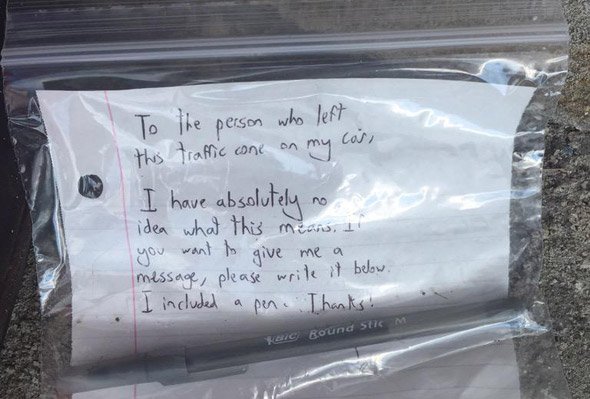 To the person who left
this traffic cone on my car,
I have absolutely no
idea what this means. If
you want to give me a
message, please write it below.
I included a pen. Thanks!
BIC Round Stic M